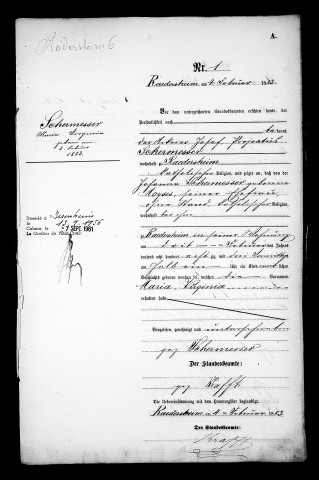 Rädersheim 6
A.
Nr. 1
Raedersheim am 4. Februar 1883
Vor dem unterzeichneten Standesbeamten erschien heute, der
Persönlichkeit nach
kannt,
der Ackerer Josef Projectus
Schermesser
wohnhaft zu Raedersheim
katholischer Religion, und zeigte an, daß von der
Schermesser geborene
Moyses, seiner Ehefrau,
ohne Stand, katholischer Religion,
wohnhaft bei ihm
zu Raedersheim in seiner Wohnung
am Februar des Jahres
tausend acht hundert achtzig und drei Vormittags
um halb ein Uhr ein Kind
Geschlechts geboren worden sei, welches die Vornamen
Maria Virginia
erhalten habe
Vorgelesen, genehmigt und unterschrieben
gez. Schermesser
Der Standesbeamte:
gez. Krafft
Die Uebereinstimmung mit dem Hauptregister beglaubigt.
Raedersheim, am 4. Februar 1883
Der Standesbeamte:
Krafft
Schermesser
Maria Virginia
1883
Décédé à Issenheim
Colmar, le 7 SEPT. 1961